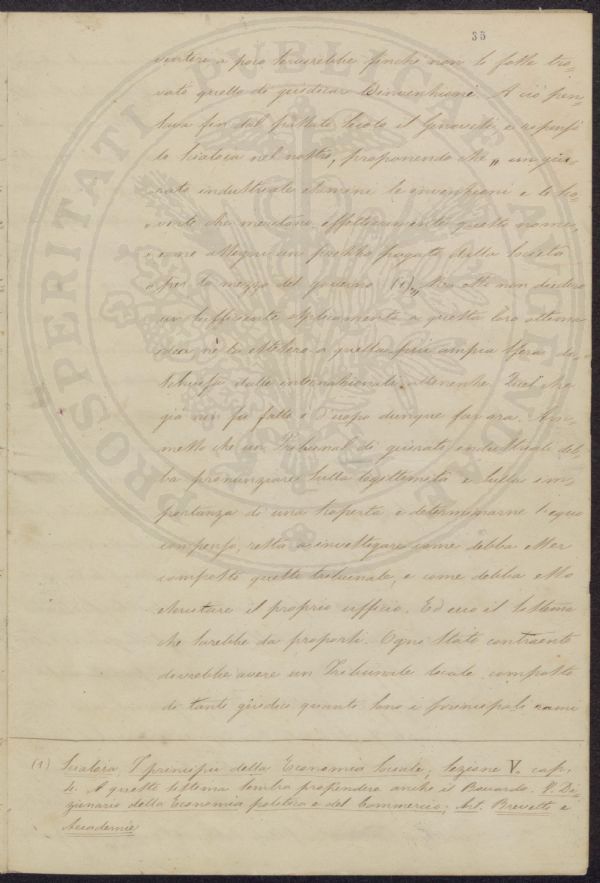 35
ventore a poco servirebbe finché non le fosse tro-
vato quello di giudicar l'invenzione. A ciò pen-
sava fin dal passato secolo il Genovesi, e
lo Scialoia nel nostro, proponendo che „ un giu-
rato industriale esamini le invenzioni e le sco-
verte che meritano effettivamente questo nome,
e ne assegni un prezzo pagato dalla società
per lo mezzo del governo (1)„ Ma essi non diedero
un sufficiente a questa loro ottima
idea, né la estesero a quella più ampia sfera
dalle internazionali attenenze. Quel che
già non fu fatto è d'uopo dunque fare ora. Am-
messo che un Tribunal di giurati industriali deb-
ba pronunziare sulla legittimità e sulla im-
portanza di una scoperta e determinarne l'equo
compenso, resta a investigare come debba esser
composto questo tribunale, e come debba esso
esercitare il proprio ufficio. Ed ecco il sistema
che sarebbe da proporsi. Ogni Stato contraente
dovrebbe avere un Tribunale locale composto
di tanti giudici quanti sono i principali rami
(1) Scialoia, I principii della Economia sociale, lezione V. cap.
4. A questo sistema sembra propendere anche il Boccardo. V. Di-
zionario della Economia politica e del Commercio; Art. Brevetti e
Accademie
PROSPERITATI PUBLICAE AUGENDAE